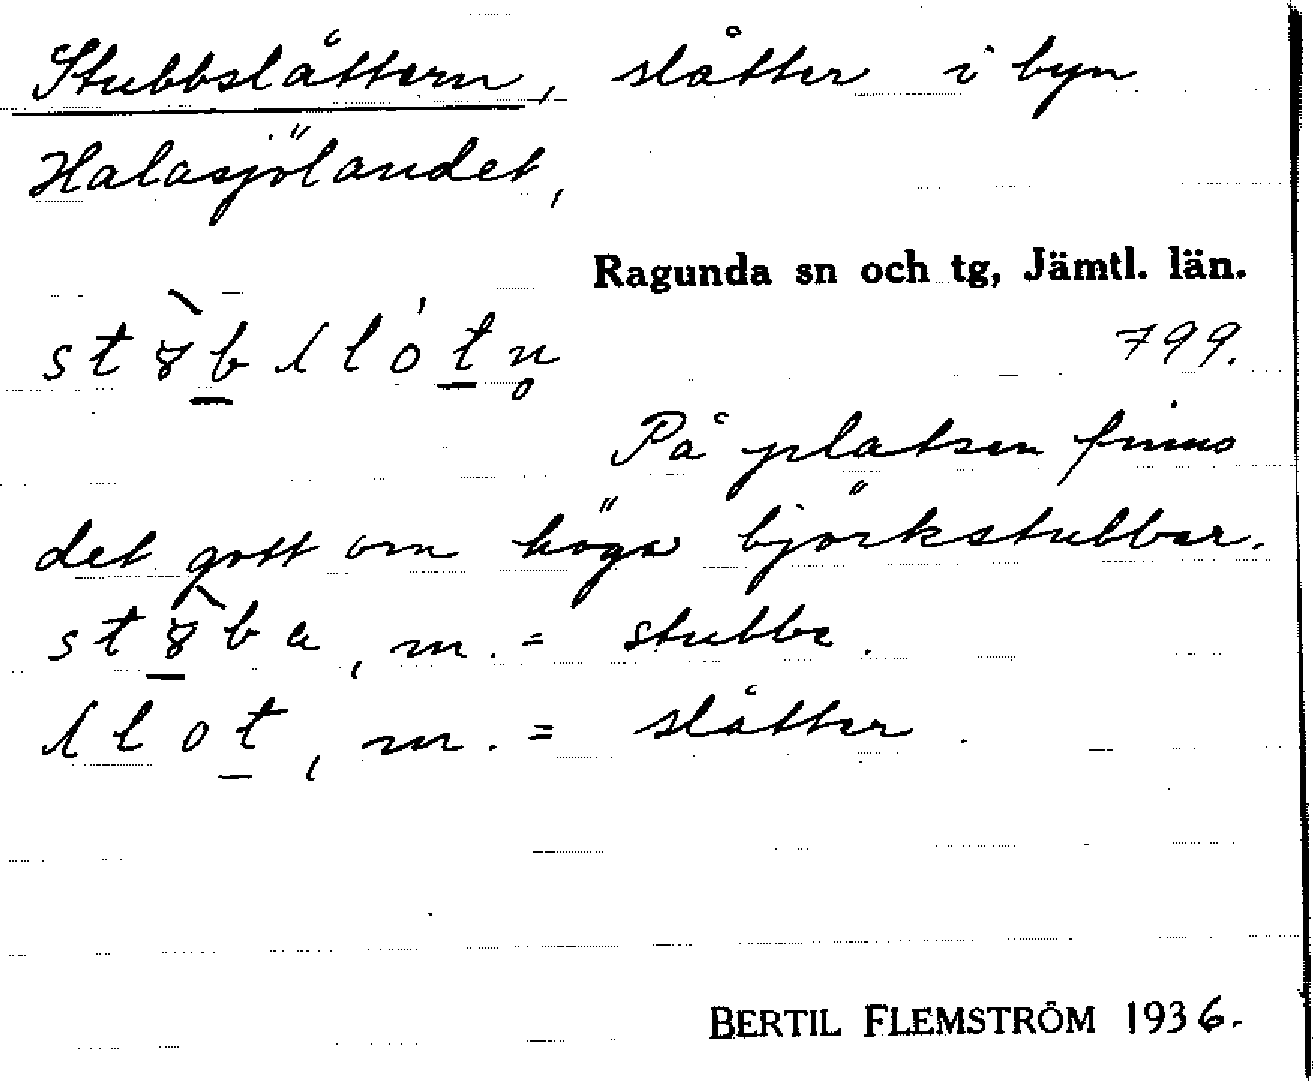 Stubbslåttern, slåtter i byn
Halasjölandet,
Ragunda sn och tg, Jämtl. län.
799.
På platsen finns
det gott om höga björkstubbar.
m. = stubbe.
m. = slåtter.
BERTIL FLEMSTRÖM 1936.